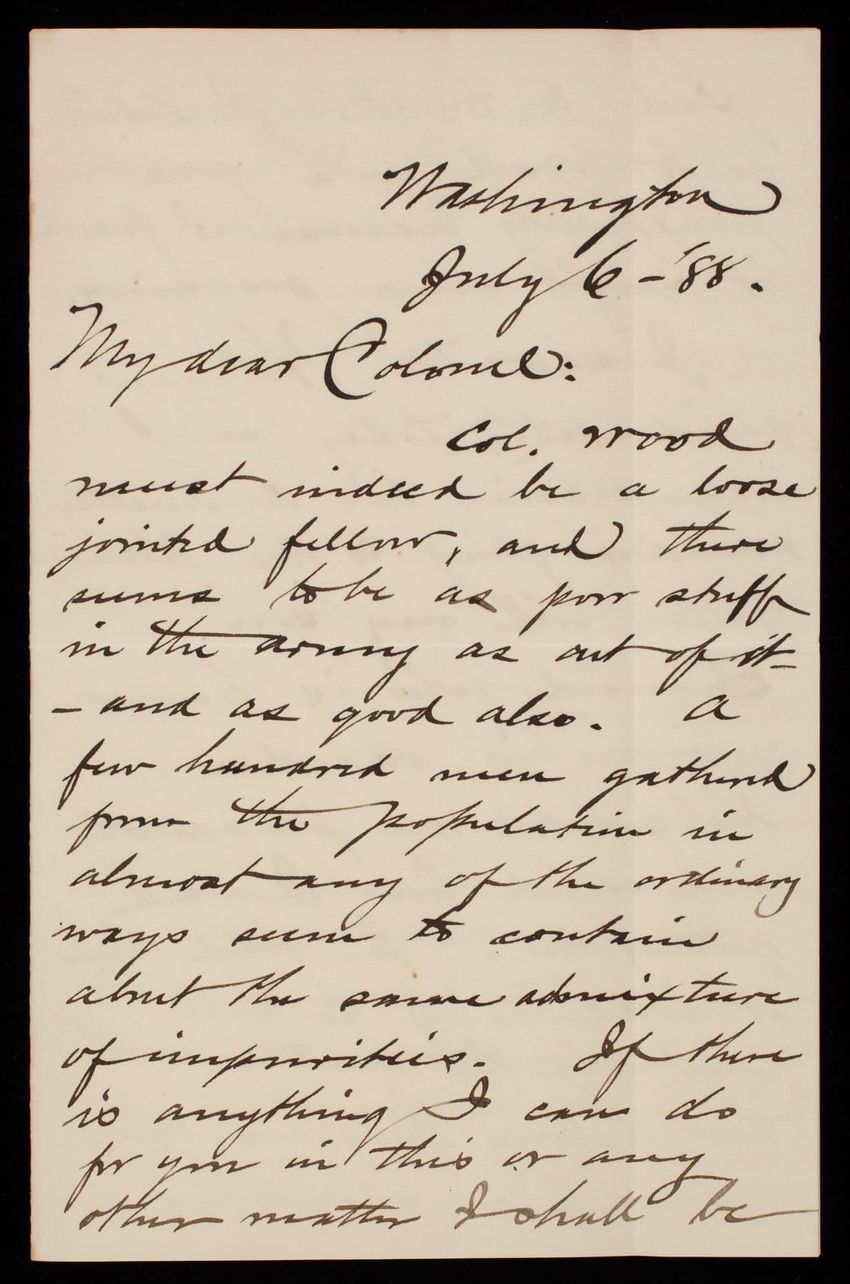 Washington
July 6 - '88.
My dear Colonel:
Col. Wood
must indeed be a loose
jointed fellow, and there
seems to be as poor stuff
in the army as out of it -
- and as good also. A
few hundred men gathered
from the population in
almost any of the ordinary
ways seem to contain
about the same admixture
of impurities. If there
is anything I can do
for you in this or any
other matter I shall be